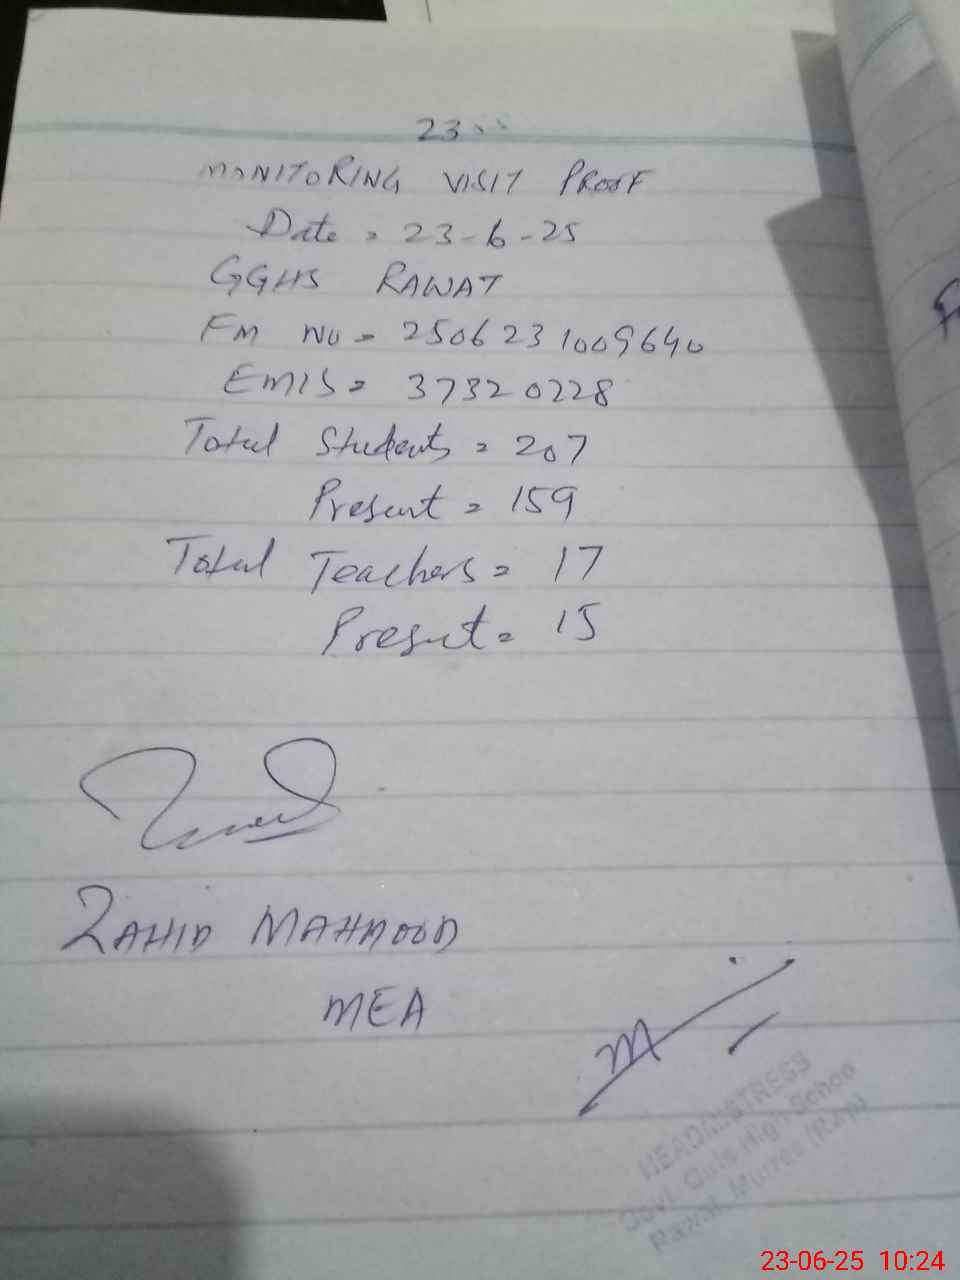 23
MONITORING VISIT PROOF
Date = 23-6-25
GGHS RAWAT
FM NO = 2506231009640
EMIS = 37320228
Total Students = 207
Present = 159
Total Teachers = 17
Present = 15
ZAHID MAHMOOD
MEA
HEADMISTRESS
Govt. Girls High School
Rawat Murree (RWP)
23-06-25 10:24